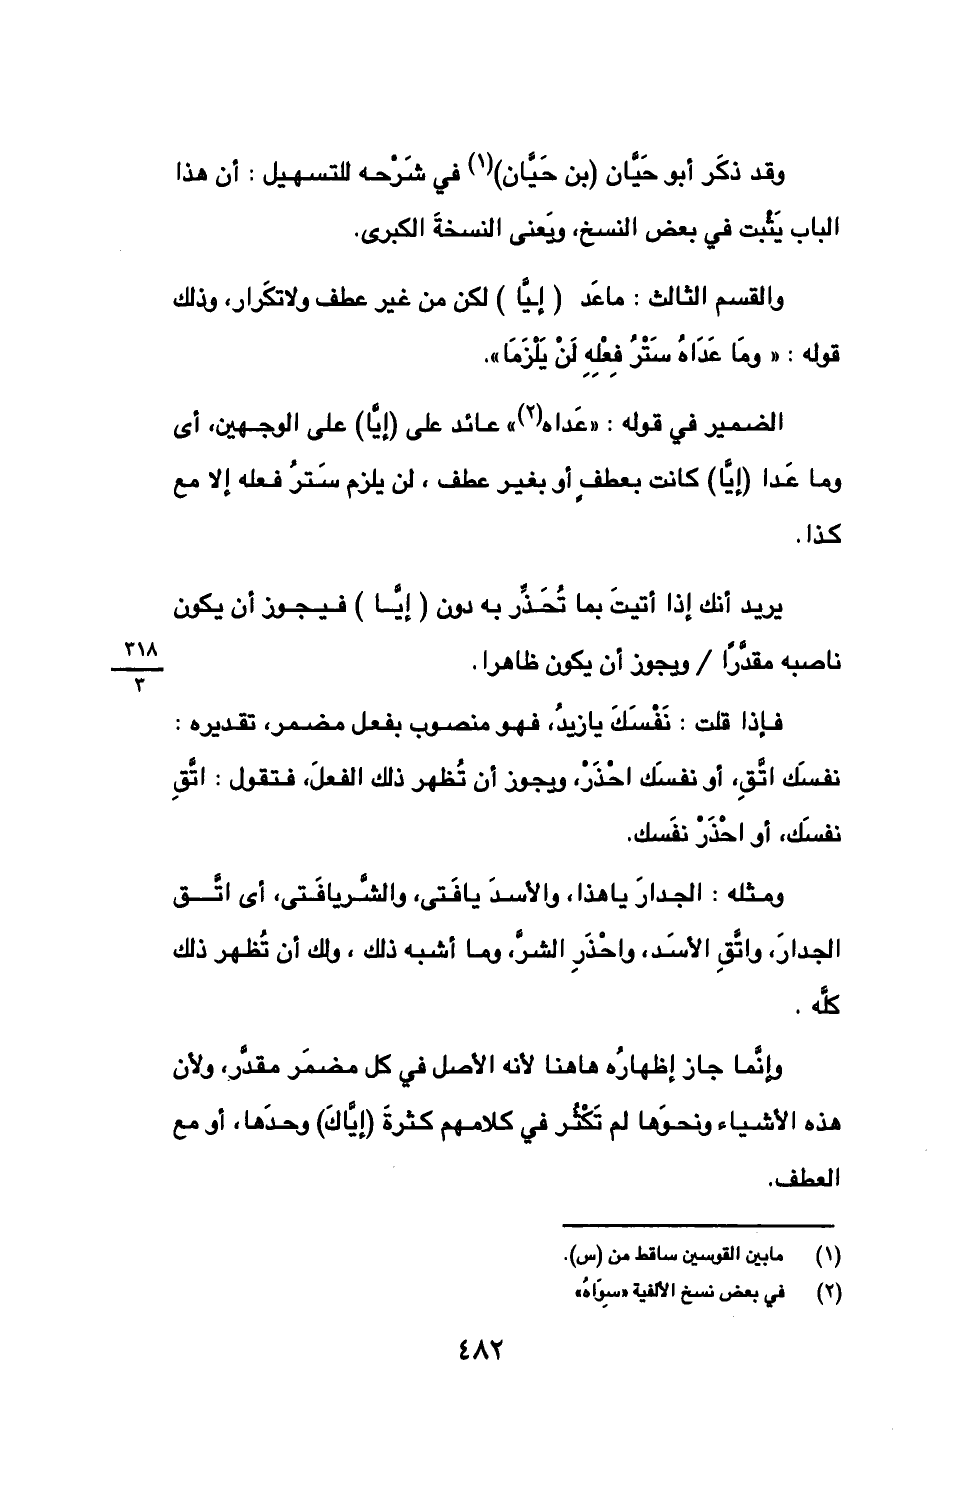 وقد ذكَر أبو حَيَّان (بن حَيَّان)(١) في شَرْحه للتسهيل : أن هذا
الباب يَثْبت في بعض النسخ، ويَعنى النسخةَ الكبرى.
والقسم الثالث : ماعَد ( إيَّا ) لكن من غير عطف ولاتكَرار، وذلك
قوله : « ومَا عَدَاهُ سَتْرُ فعْلِهِ لَنْ يَلْزَمَا».
الضمير في قوله : «عَداه(٢)» عائد على (إيَّا) على الوجهين، أى
وما عَدا (إيَّا) كانت بعطفٍ أو بغير عطف ، لن يلزم سَترُ فعله إلا مع
كذا .
يريد أنك إذا أتيتَ بما تُحَذِّر به دون ( إيَّا ) فيجوز أن يكون
ناصبه مقدَّرًا / ويجوز أن يكون ظاهرا .
٣١٨
٣
فإذا قلت : نَفْسَكَ يازيدُ، فهو منصوب بفعل مضمر، تقديره :
نفسَك اتَّقِ، أو نفسَك احْذَرْ، ويجوز أن تُظهر ذلك الفعلَ، فتقول : اتَّقِ
نفسَك، أو احْذَرْ نفَسك.
ومثله : الجدارَ ياهذا، والأسدَ يافَتى، والشَّريافَتى، أى اتَّق
الجدارَ، واتَّقِ الأسَد، واحْذَرِ الشرَّ، وما أشبه ذلك ، ولك أن تُظهر ذلك
كلَّه .
وإنَّما جاز إظهارُه هاهنا لأنه الأصل في كل مضمَر مقدَّر، ولأن
هذه الأشياء ونحوَها لم تَكْثُر في كلامهم كثرةَ (إيَّاكَ) وحدَها، أو مع
العطف.
(١) مابين القوسين ساقط من (س).
(٢) في بعض نسخ الألفية «سِوَاهُ»
٤٨٢